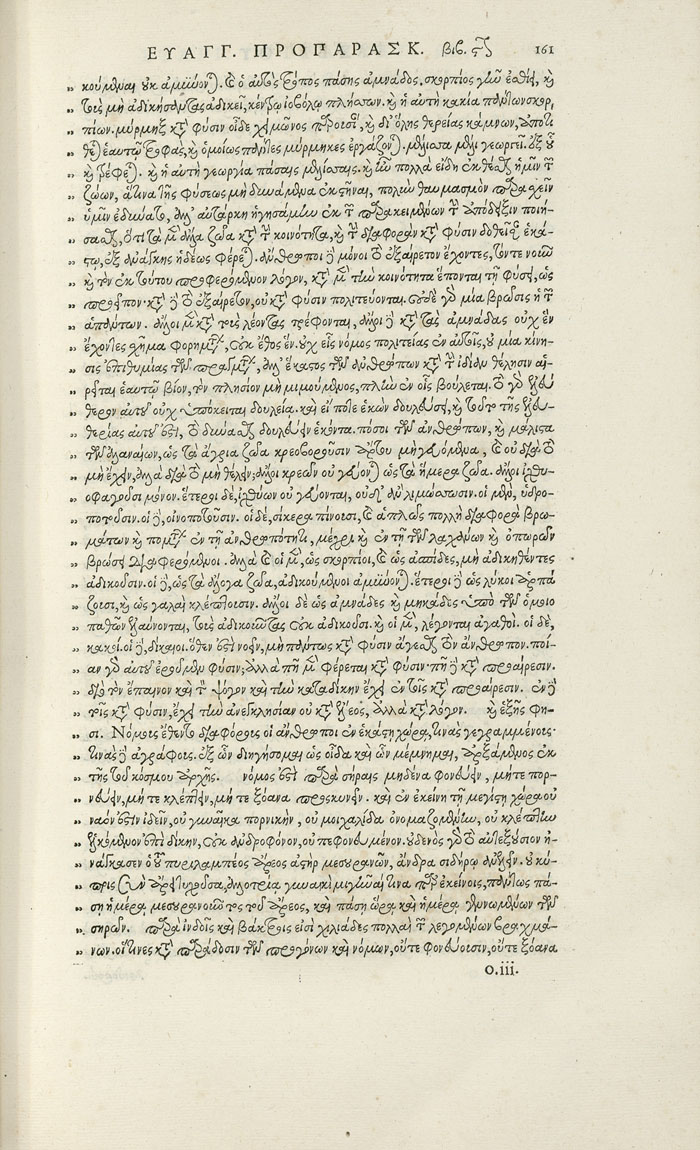 ΕΥΑΓΓ. ΠΡΟΠΑΡΑΣΚ. βιβ. ϛ 161
κούμεναι οὐκ ἀμύνονται. καὶ ὁ αὐτὸς τρόπος πάσης ἀμνάδος. σκορπίος γῆν ἐσθίει, καὶ
τοὺς μὴ ἀδικήσαντας ἀδικεῖ, κέντρῳ ἰοβόλῳ πλήσσων. καὶ ἡ αὐτὴ κακία πάντων σκορ-
πίων. μύρμηξ κατὰ φύσιν οἶδε χειμῶνος καὶ δι' ὅλης θερείας κάμνων, ἀποτί
θεται ἑαυτῷ τροφὰς, καὶ ὁμοίως πάντες μύρμηκες ἐργάζονται. μέλισσα μέλι γεωργεῖ. ἐξ οὗ
καὶ τρέφεται. καὶ ἡ αὐτὴ γεωργία πάσαις μελίσσαις. καὶ ἦν πολλὰ εἴδη ἐκθέσθαι ἡμῖν τῶν
ζώων, ἅτινα τῆς φύσεως μὴ δυνάμενα ἐκστῆναι, πολὺν θαυμασμὸν παρασχεῖν
ὑμῖν ἐδύνατο, ἀλλ' αὐτάρκη ἡγησάμην ἐκ τῶν παρακειμένων τὴν ἀπόδειξιν ποιή-
σασθαι, ὅτι τὰ μὲν ἄλλα ζῶα κατὰ τὴν κοινότητα, καὶ τὴν διαφορὰν κατὰ φύσιν δοθεῖσαν ἑκά-
στῳ, ἐξ ἀνάγκης ἡδέως φέρεται. ἄνθρωποι δὲ μόνοι τὸ ἐξαίρετον ἔχοντες, τόν τε νοῦν
καὶ τὸν ἐκ τούτου προφερόμενον λόγον, κατὰ μὲν τὴν κοινότητα ἕπονται τῇ φύσει, ὡς
προεῖπον· κατὰ δὲ τὸ ἐξαίρετον, οὐ κατὰ φύσιν πολιτεύονται. οὐδὲ γὰρ μία βρῶσις ἡ τῶν
ἁπάντων. ἄλλοι μὲν κατὰ τοὺς λέοντας τρέφονται, ἄλλοι δὲ κατὰ τὰς ἀμνάδας οὐχ ἓν
ἔχοντες σχῆμα φορημάτων, οὐκ ἔθος ἕν. οὐχ εἷς νόμος πολιτείας ἐν αὐτοῖς, οὐ μία κίνη-
σις ἐπιθυμίας τῶν πραγμάτων, ἀλλ' ἕκαστος τῶν ἀνθρώπων κατὰ τὴν ἰδίαν θέλησιν αἱ-
ρεῖται ἑαυτῷ βίον, τὸν πλησίον μὴ μιμούμενος, πλὴν ἐν οἷς βούλεται. τὸ γὰρ ἐλεύ
θερον αὐτοῦ οὐχ ὑπόκειται δουλείᾳ. καὶ εἴ ποτε ἑκὼν δουλεύσει, καὶ τοῦτο τῆς ἐλευ-
θερίας αὐτοῦ ἐστι, τὸ δύνασθαι δουλεύειν ἑκόντα. πόσοι τῶν ἀνθρώπων, καὶ μάλιστα
τῶν Ἀλαναίων, ὡς τὰ ἄγρια ζῶα κρεοβοροῦσιν ἄρτου μὴ γευόμενοι, καὶ οὐ διὰ τὸ
μὴ ἔχειν, ἀλλὰ διὰ τὸ μὴ θέλειν; ἄλλοι κρεῶν οὐ γεύονται ὡς τὰ ἥμερα ζῶα. ἄλλοι ἰχθυ-
οφαγοῦσι μόνον. ἕτεροι δὲ, ἰχθύων οὐ γεύονται, οὐδ' ἂν λιμώσσωσιν. οἱ μὲν, ὑδρο-
ποτοῦσιν. οἱ δὲ, οἰνοποτοῦσιν. οἱ δὲ, σίκερα πίνουσι, καὶ ἁπλῶς πολλὴ διαφορὰ βρω-
μάτων καὶ πομάτων ἐν τῇ ἀνθρωπότητι, μέχρι καὶ ἐν τῇ τῶν λαχάνων καὶ ὀπωρῶν
βρώσει διαφερόμενοι. ἀλλὰ καὶ οἱ μὲν, ὡς σκορπίοι, καὶ ὡς ἀσπίδες, μὴ ἀδικηθέντες
ἀδικοῦσιν. οἱ δὲ, ὡς τὰ ἄλογα ζῶα, ἀδικούμενοι ἀμύνονται. ἕτεροι δὲ ὡς λύκοι ἁρπά
ζουσι, καὶ ὡς γαλαῖ κλέπτουσιν. ἄλλοι δὲ ὡς ἀμνάδες καὶ μηκάδες ὑπὸ τῶν ὁμοιο
παθῶν ἐλαύνονται, τοὺς ἀδικοῦντας οὐκ ἀδικοῦσι. καὶ οἱ μὲν, λέγονται ἀγαθοί. οἱ δὲ,
κακοί. οἱ δὲ, δίκαιοι. ὅθεν ἐστὶ νοεῖν, μὴ πάντως κατὰ φύσιν ἄγεσθαι τὸν ἄνθρωπον. ποί-
αν γὰρ αὐτοῦ ἐροῦμεν φύσιν; ἀλλὰ πῆ μὲν φέρεται κατὰ φύσιν· πῆ δὲ κατὰ προαίρεσιν.
διὸ τὸν ἔπαινον καὶ τὸν ψόγον καὶ τὴν καταδίκην ἔχει ἐν τοῖς κατὰ προαίρεσιν. ἐν δὲ
τοῖς κατὰ φύσιν, ἔχει τὴν ἀνεκλησίαν οὐ κατὰ ἔλεος, ἀλλὰ κατὰ λόγον. καὶ ἑξῆς φη-
σι. Νόμους ἔθεντο διαφόρους οἱ ἄνθρωποι ἐν ἑκάστῃ χώρᾳ, τινὰς γεγραμμένους·
τινὰς δὲ ἀγράφους. ἐξ ὧν διηγήσομαι ὡς οἶδα καὶ ὧν μέμνημαι, ἀρξάμενος ἐκ
τῆς τοῦ κόσμου ἀρχῆς. νόμος ἐστὶ παρὰ σήραις μηδένα φονεύειν, μήτε πορ-
νεύειν, μήτε κλέπτειν, μήτε ξόανα προσκυνεῖν. καὶ ἐν ἐκείνῃ τῇ μεγίστῃ χώρᾳ οὐ
ναόν ἐστιν ἰδεῖν, οὐ γυναῖκα πορνικὴν, οὐ μοιχαλίδα ὀνομαζομένην, οὐ κλέπτην
ἑλκόμενον ἐπὶ δίκην, οὐκ ἀνδροφόνον, οὐ πεφονευμένον. οὐδενὸς γὰρ τὸ αὐτεξούσιον ἠ-
νάγκασεν ὁ τοῦ πυριλαμπέος ἄρεος ἀστὴρ μεσουρανῶν, ἄνδρα σιδήρῳ ἀνελεῖν. οὐ κύ-
πρις σὺν ἄρει τυχοῦσα, ἀλλοτρίᾳ γυναικὶ μιγῆναί τινα παρ' ἐκείνοις, πάντως πά-
σῃ ἡμέρᾳ μεσουρανοῦντος τοῦ ἄρεος, καὶ πάσῃ ὥρᾳ καὶ ἡμέρᾳ γεννωμένων τῶν
σηρῶν. παρὰ ἰνδοῖς καὶ βάκτροις εἰσὶ χιλιάδες πολλαὶ τῶν λεγομένων βραχμά-
νων. οἵτινες κατὰ παράδοσιν τῶν προγόνων καὶ νόμων, οὔτε φονεύουσιν, οὔτε ξόανα
O.iii.